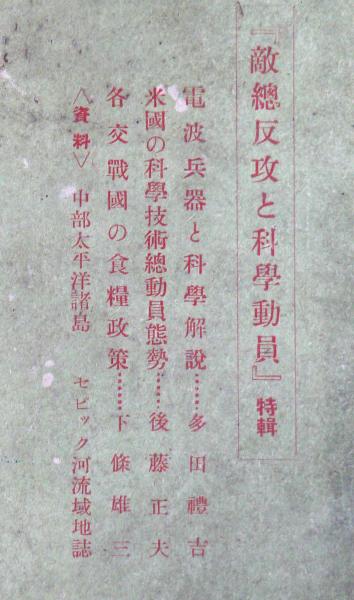 『敵總反攻と科學動員』特輯
電波兵器と科學解說……多田禮吉
米國の科學技術總動員態勢……後藤正夫
各交戰國の食糧政策……下條雄三
〈資料〉 中部太平洋諸島 セピック河流域地誌